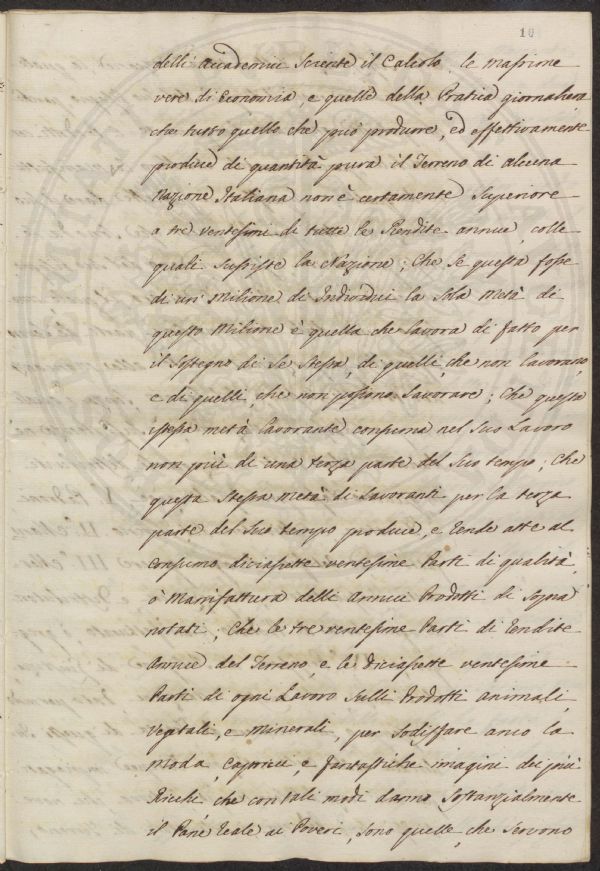 10
delli Accademici Sciente il Calcolo, le massime
vere di Economia, e quelle della Pratica giornaliera
che tutto quello che può produrre, ed effettivamente
produce di quantità pura il Terreno di alcuna
Nazione Italiana non è certamente Superiore
a tre ventesimi di tutte le Rendite annue, colle
quali Sussiste la Nazione; Che Se questa fosse
di un Milione di Individui la Sola metà di
questo Milione è quella che lavora di fatto per
il Sostegno di Se Stessa, di quelli, che non lavorano,
e di quelli, che non possono Lavorare; Che questa
istessa metà lavorante consuma nel Suo Lavoro
non più di una terza parte del Suo tempo; Che
questa Stessa Metà di Lavoranti per la terza
parte del Suo tempo produce, e rende atte al
Consumo diciasette ventesime Parti di qualità,
o Manifattura delli Annui Prodotti di Sopra
notati; Che le tre ventesime Parti di Rendite
Annue del Terreno, e le diciasette ventesime
Parti di ogni Lavoro Sulli Prodotti animali,
Vegetali, e Minerali, per Sodisfare anco la
Moda, Capricci, e fantastiche imagini dei più
Ricchi, che con tali modi danno Sostanzialmente
il Pane Reale ai Poveri, Sono quelle, che Servono